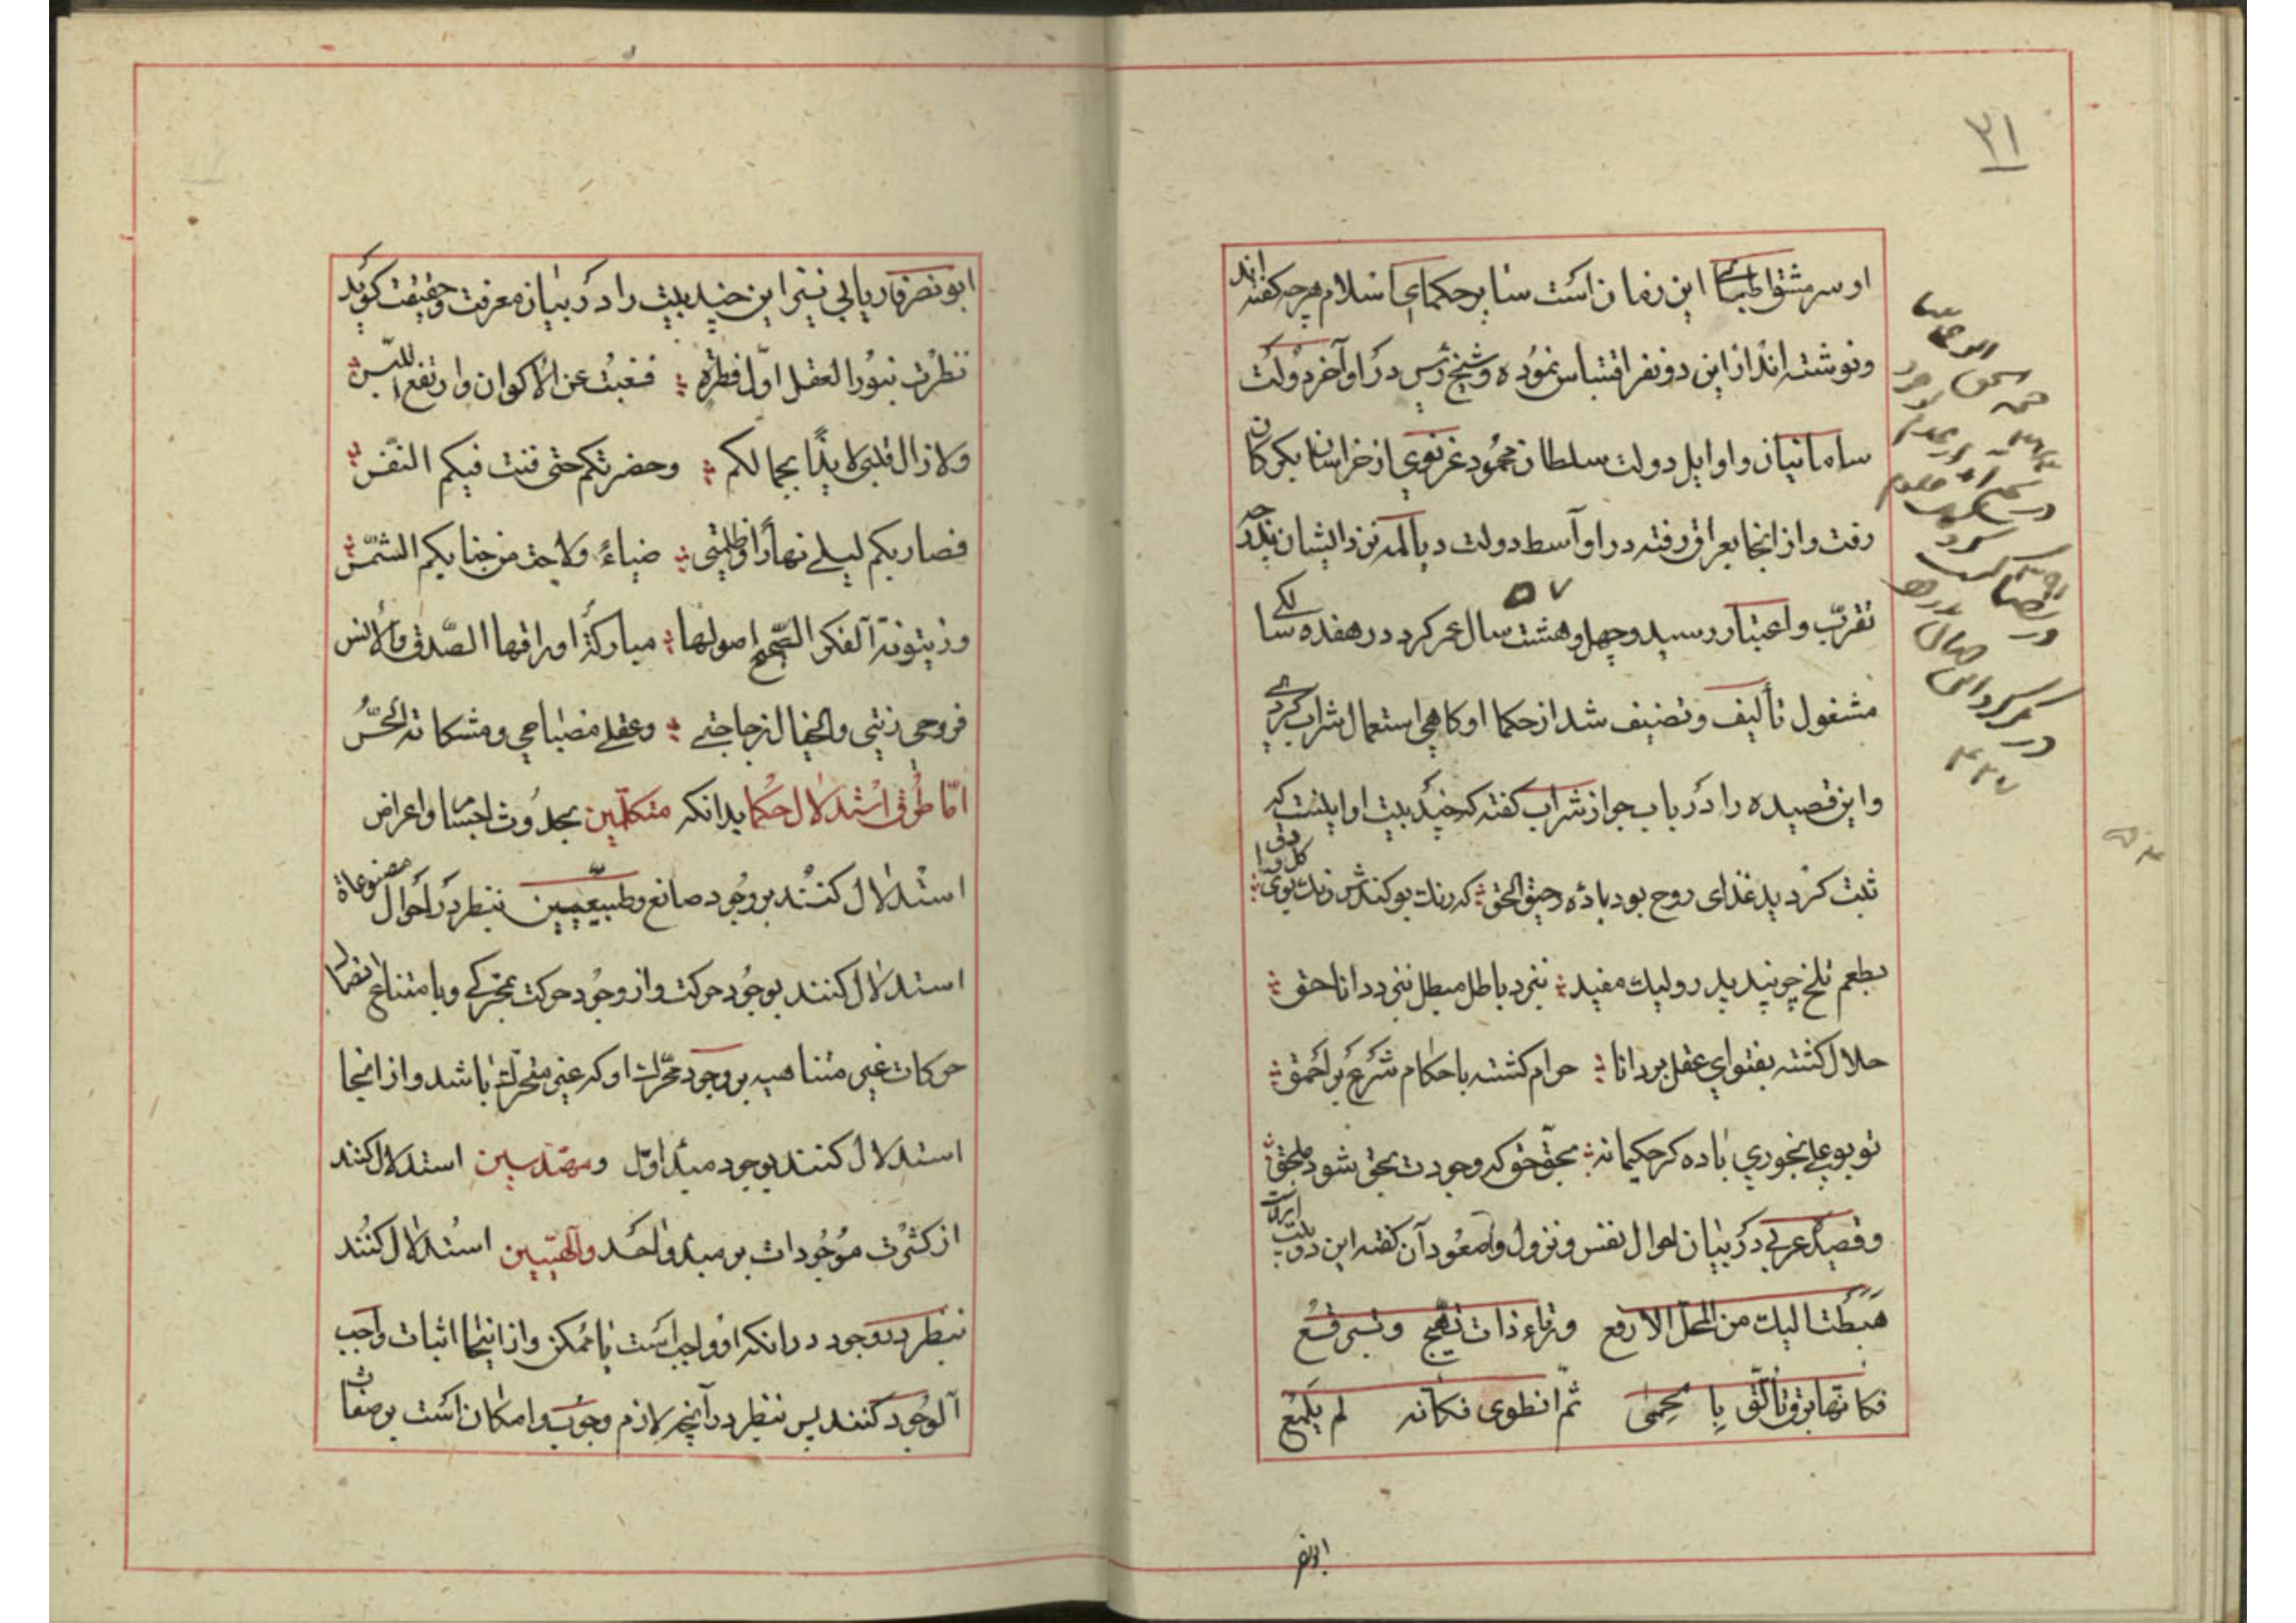 ۳۱
او سر مشق اطبای این زمان است سایر حکمای اسلام هر چه گفته اند
ونوشته اند از این دو نفر اقتباس نموده و شیخ رئیس در اواخر دولت
سامانیان و اوایل دولت سلطان محمود غزنوی از خراسان بکرکان
رفت و از انجا بعراق رفته در اواسط دولت دیالمه نزد ایشان بدرجه
تقرّب و اعتبار رسید و چهل و هشت سال عمر کرد در هفده سالکی
۵۷
مشغول تألیف و تصنیف شد از حکما او کاهی استعمال شراب کردی
و این قصیده را در باب جواز شراب کفته که چند بیت او اینست که
ثبت کردید غذای روح بود باده رحیق الحق که رنک بو کندش رنک بوی کل را دق
بطعم تلخ چو پند پدر ولیک مفید نزد باطل مبطل نزد دانا حق
حلال کشته بفتوای عقل بر دانا حرام کشته باحکام شرع بر احمق
تو بو علی بخوری باده کر حکیمانه بحق حق که وجودت بحق شود ملحق
و قصیده عربی در بیان احوال نفس و نزول و صعود آن کفته این دو بیت از آنست
هبطت الیك من المحل الارفع ورقاء ذات تهیج وتسرفع
فکانها برق تألّق بالحمی ثمّ انطوی فکانه لم یلمع
ابونصر
در سن
در کرکان
۴۲۷
ابو نصر فاریابی نیز این چند بیت را در بیان معرفت وحقیقت کوید
نظرت بنور العقل اوّل فطرة فغبت عن الاکوان وارتفع اللبس
ولازال قلبی لایذاً بجمالکم وحضرتکم حتی فنت فیکم النفس
فصار بکم لیلی نهاراً وظلمتی ضیاءً ولاحت من جنابکم الشمس
وزیتونة الفکر الصّحیح اصولها مبارکة اوراقها الصّدق والانس
فروحی زیتی والخیال زجاجتی وعقلی مصباحی ومشکاته الحسّ
امّا طرق استدلال حکما بدانکه متکلّمین بحدوث اجسام و اعراض
استدلال کنند بر وجود صانع وطبیعیّین بنظر در احوال مصنوعاة
استدلال کنند بوجود حرکت و از وجود حرکت بمحرکی و بامتناع اتصال
حرکات غیر متناهیه بر وجود محرّك او که غیر متحرّك باشد و از انجا
استدلال کنند بوجود مبدأ اوّل ومهندسین استدلال کنند
از کثرت موجودات بر مبدء واحد والهیّیین استدلال کنند
بنظر در وجود در انکه او واجب است یا ممکن و از اینجا اثبات واجب
الوجود کنند پس بنظر در آنچه لازم وجوب و امکان است بر صفات